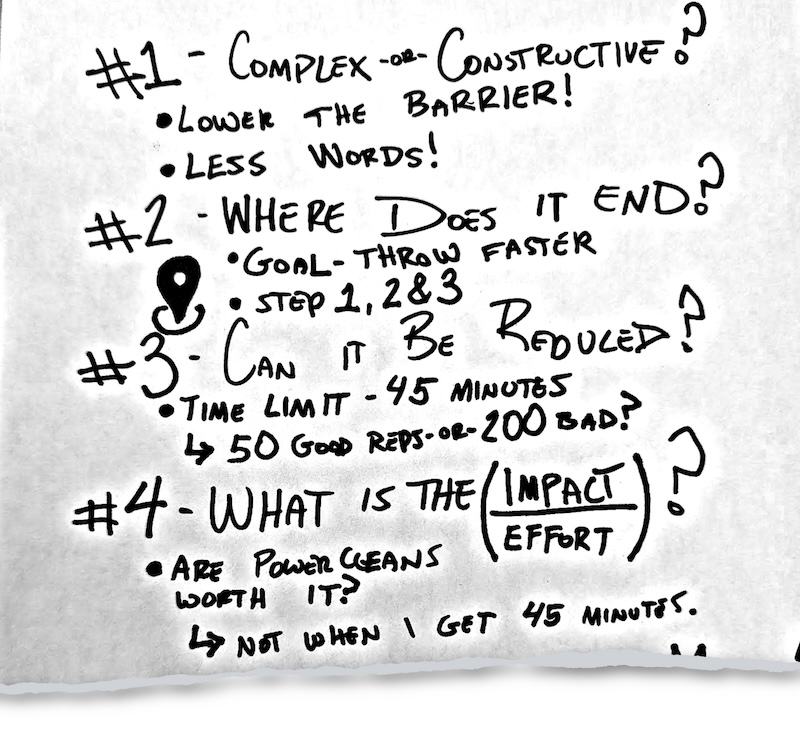 #1 - COMPLEX -OR- CONSTRUCTIVE?
• LOWER THE BARRIER!
• LESS WORDS!
#2 - WHERE DOES IT END?
• GOAL - THROW FASTER
• STEP 1, 2 & 3
#3 - CAN IT BE REDUCED?
• TIME LIMIT - 45 MINUTES
↳ 50 GOOD REPS -OR- 200 BAD?
#4 - WHAT IS THE (IMPACT
EFFORT)?
• ARE POWER CLEANS
WORTH IT?
↳ NOT WHEN I GET 45 MINUTES.